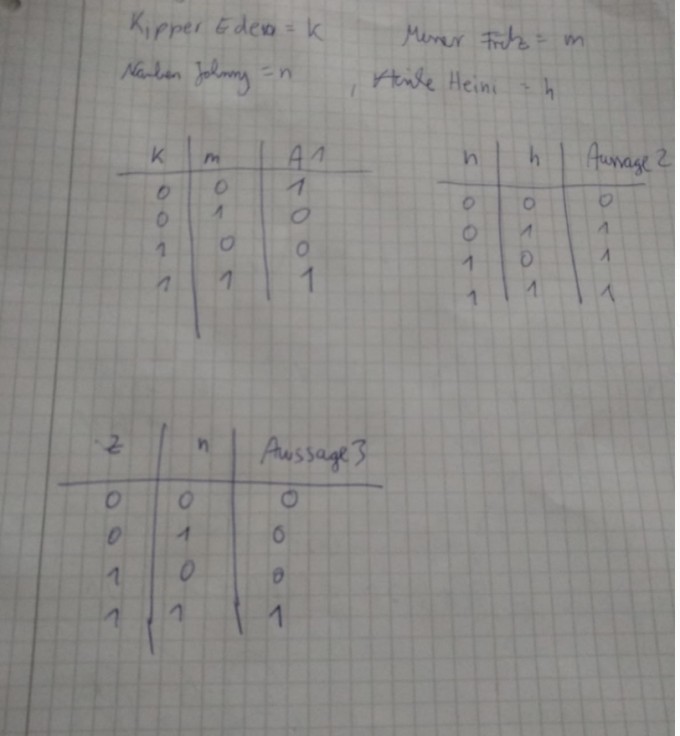 Kipper Eden = K
= m
Johnny = n , Heini = h
K m A1
0 0 1
0 1 0
1 0 0
1 1 1
n h Aussage 2
0 0 0
0 1 1
1 0 1
1 1 1
Z n Aussage 3
0 0 0
0 1 0
1 0 0
1 1 1